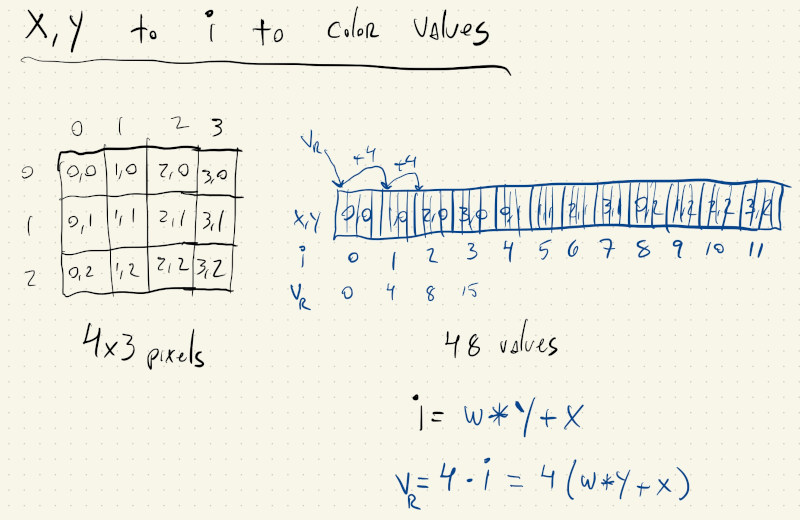 X,Y to i to color values
0 1 2 3
0 0,0 1,0 2,0 3,0
1 0,1 1,1 2,1 3,1
2 0,2 1,2 2,2 3,2
4x3 pixels
VR +4 +4
X,Y 0,0 1,0 2,0 3,0 0,1 1,1 2,1 3,1 0,2 1,2 2,2 3,2
i 0 1 2 3 4 5 6 7 8 9 10 11
VR 0 4 8 15
48 values
i = w*Y+X
VR = 4 · i = 4(w*Y+X)